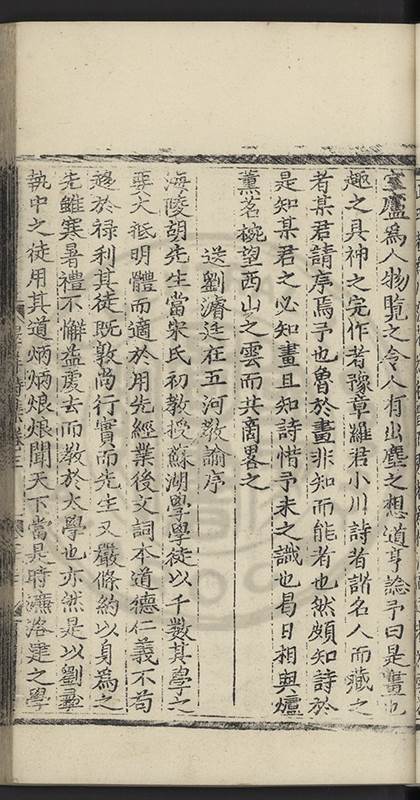 室廬為人物覧之令人有出塵之想道亨諗予曰是畫也
趣之具神之完作者豫章羅君小川詩者諸名人而藏之
者某君請序焉予也魯於畫非知而能者也然頗知詩於
是知某君之必知畫且知詩惜予未之識也曷日相與爐
薰茗椀望西山之雲而共商畧之
送劉濬廷在五河教諭序
海陵胡先生當宋氏初教授蘇湖學學徒以千數其學之
要大抵明體而適於用先經業後文詞本道德仁義不苟
趍於禄利其徒既敦尚行實而先生又嚴條約以身為之
先雖寒暑禮不懈盖慶去而教於太學也亦然是以劉彝
執中之徒用其道炳炳烺烺聞天下當是時濂洛建之學